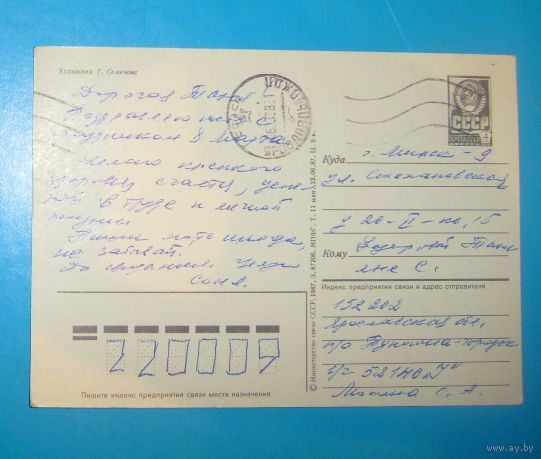 Художник Г. Семенова
Дорогая Таня!
Поздравляю тебя с
праздником 8 Марта
Желаю крепкого
здоровья, счастья,
в труде и личной
жизни.
Пиши хоть иногда,
не забывай.
До свидания. Целую
Соня.
СССР
ПОЧТА
4
Куда г. Минск-9
ул. Стахановская
д 20-II-кв. 15
Кому Федоровой Тать-
яне С.
Индекс предприятия связи и адрес отправителя
152202
Ярославская обл.
п/о Туношна-городок
в/ч
С. А.
220009
Пишите индекс предприятия связи места назначения
© Министерство связи СССР, 1987. З. 87206. МПФГ.
www.ay.by